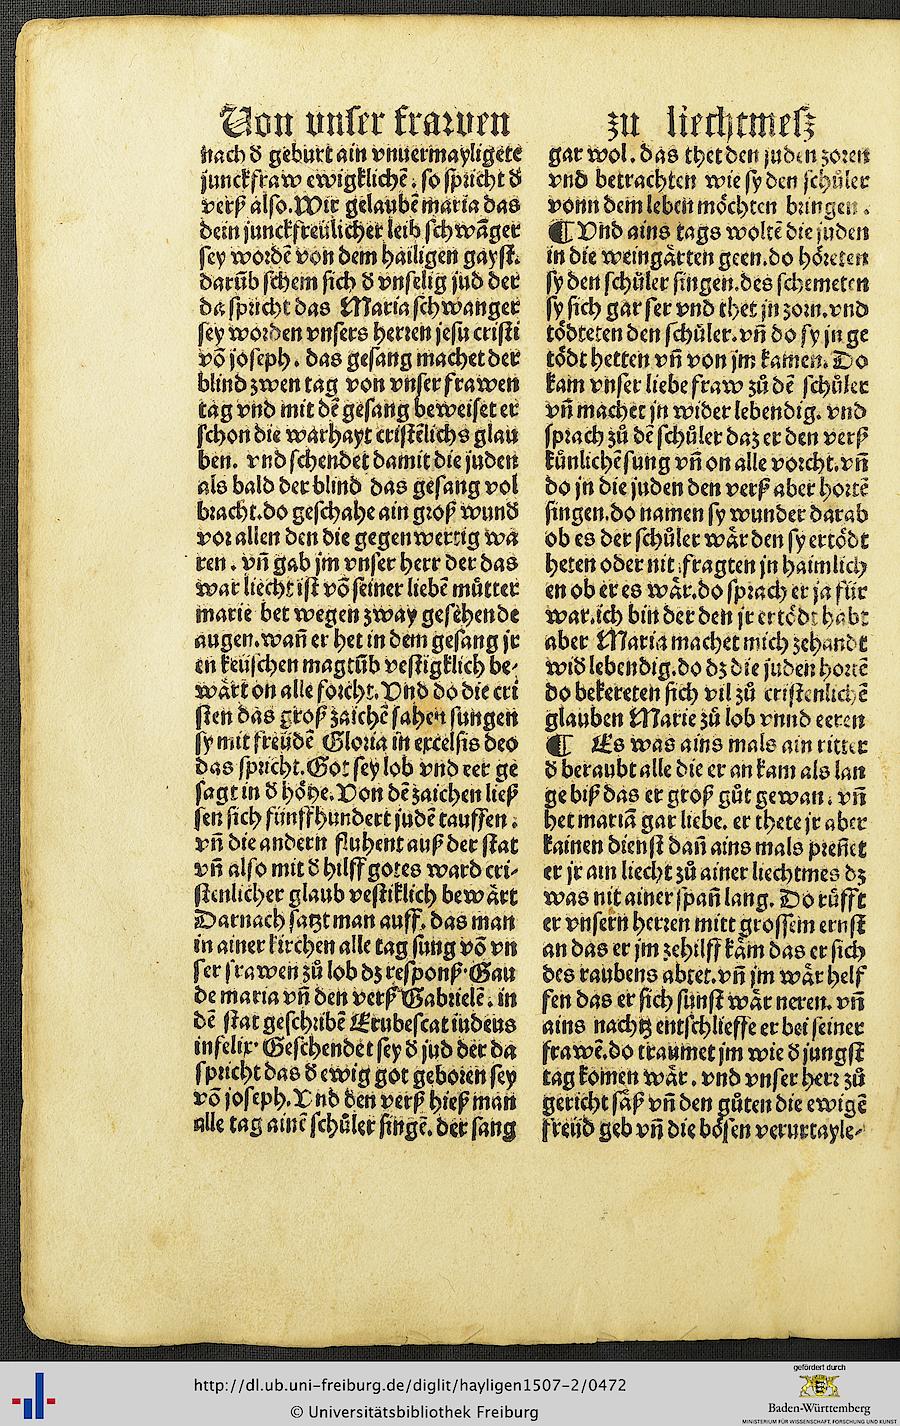 Von vnser frawen zu liechtmesz
nach d̕ geburt ain vnuermayligete
junckfraw ewigklichē. so spricht d̕
verß also. Wir gelaubē maria das
dein junckfreülicher leib schwāger
sey wordē von dem hailigen gayst.
darūb schem sich d̕ vnselig jud der
da spricht das Maria schwanger
sey worden vnsers herren jesu cristi
vō joseph. das gesang machet der
blind zwen tag von vnser frawen
tag vnd mit dē gesang beweiset er
schon die warhayt cristēlichs glau
ben. vnd schendet damit die juden
als bald der blind das gesang vol
bracht. do geschahe ain groß wund̕
vor allen den die gegenwertig wa
ren. vn̄ gab jm vnser herr der das
war liecht ist vō seiner liebē můtter
marie bet wegen zway gesehende
augen. wan̄ er het in dem gesang jr
en keüschen magtūb vestigklich be-
wärt on alle forcht. Vnd do die cri
sten das groß zaichē sahen sungen
sy mit freüdē Gloria in excelsis deo
das spricht. Got sey lob vnd eer ge
sagt in d̕ höhe. Von dē zaichen ließ
sen sich fünffhundert judē tauffen.
vn̄ die andern fluhent auß der stat
vn̄ also mit d̕ hilff gotes ward cri-
stenlicher glaub vestiklich bewärt
Darnach satzt man auff. das man
in ainer kirchen alle tag sung vō vn
ser frawen zů lob dz responß. Gau
de maria vn̄ den verß Gabrielē. in
dē stat geschribē Erubescat iudeus
infelix. Geschendet sey d̕ jud der da
spricht das d̕ ewig got geboren sey
vō joseph. Vnd den verß hieß man
alle tag ainē schůler singē. der sang
gar wol. das thet den juden zoren
vnd betrachten wie sy den schůler
vonn dem leben möchten bringen.
¶ Vnd ains tags woltē die juden
in die weingärten geen. do höreten
sy den schůler singen. des schemeten
sy sich gar ser vnd thet jn zorn. vnd
tödteten den schůler. vn̄ do sy jn ge
tödt hetten vn̄ von jm kamen. Do
kam vnser liebe fraw zů dē schůler
vn̄ machet jn wider lebendig. vnd
sprach zů dē schůler daz er den verß
künlichē sung vn̄ on alle vorcht. vn̄
do jn die juden den verß aber hortē
singen. do namen sy wunder darab
ob es der schůler wär den sy ertödt
heten oder nit. fragten jn haimlich
en ob er es wär. do sprach er ja für
war. ich bin der den jr ertödt habt
aber Maria machet mich zehandt
wid̕ lebendig. do dz die juden hortē
do bekereten sich vil zů cristenlichē
glauben Marie zů lob vnnd eeren
¶ Es was ains mals ain ritter
d̕ beraubt alle die er an kam als lan
ge biß das er groß gůt gewan. vn̄
het mariā gar liebe. er thete jr aber
kainen dienst dan̄ ains mals pren̄et
er jr ain liecht zů ainer liechtmes dz
was nit ainer span̄ lang. Do rüfft
er vnsern herren mitt grossem ernst
an das er jm zehilff käm das er sich
des raubens abtet. vn̄ jm wär helf
fen das er sich sunst wär neren. vn̄
ains nachtz entschlieffe er bei seiner
frawē. do traumet jm wie d̕ jungst
tag komen wär. vnd vnser herr zů
gericht säß vn̄ den gůten die ewigē
freüd geb vn̄ die bösen verurtayle-
http://dl.ub.uni-freiburg.de/diglit/hayligen1507-2/0472
© Universitätsbibliothek Freiburg
gefördert durch
Baden-Württemberg
MINISTERIUM FÜR WISSENSCHAFT, FORSCHUNG UND KUNST